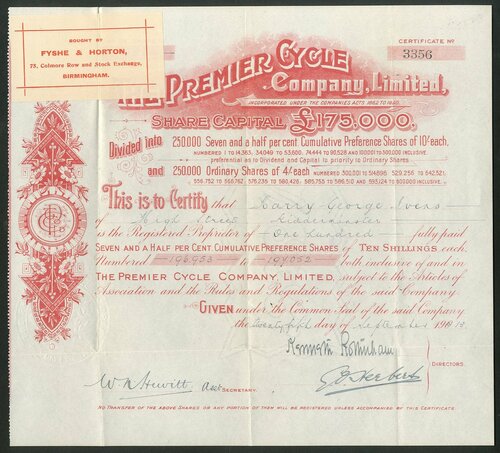 BOUGHT BY
FYSHE & HORTON,
75, Colmore Row and Stock Exchange,
BIRMINGHAM.
CERTIFICATE No
3356
THE PREMIER CYCLE
Company, Limited,
INCORPORATED UNDER THE COMPANIES ACTS 1862 TO 1890.
SHARE CAPITAL £175,000,
Divided into 250,000 Seven and a half per cent. Cumulative Preference Shares of 10/- each,
NUMBERED 1 TO 14,363, 34,049 TO 53,600, 74,444 TO 96,528 AND 100,001 TO 300,000 INCLUSIVE.
preferential as to Dividend and Capital to priority to Ordinary Shares.
and 250,000 Ordinary Shares of 4/- each NUMBERED 300,001 TO 514,896, 529,256 TO 542,321,
This is to Certify that Harry George Ivens
of High Street Kidderminster
is the Registered Proprietor of One hundred fully paid
SEVEN AND A HALF PER CENT. CUMULATIVE PREFERENCE SHARES OF TEN SHILLINGS each.
Numbered 196953 to 197052 both inclusive of and in
THE PREMIER CYCLE COMPANY, LIMITED, subject to the Articles of
Association and the Rules and Regulations of the said Company.
GIVEN under the Common Seal of the said Company
the twenty fifth day of September 1913
DIRECTORS.
W A Hewitt SECRETARY.
NO TRANSFER OF THE ABOVE SHARES OR ANY PORTION OF THEM WILL BE REGISTERED UNLESS ACCOMPANIED BY THIS CERTIFICATE.